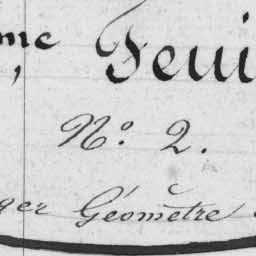 me Feui
N.° 2.
ger Géomètre